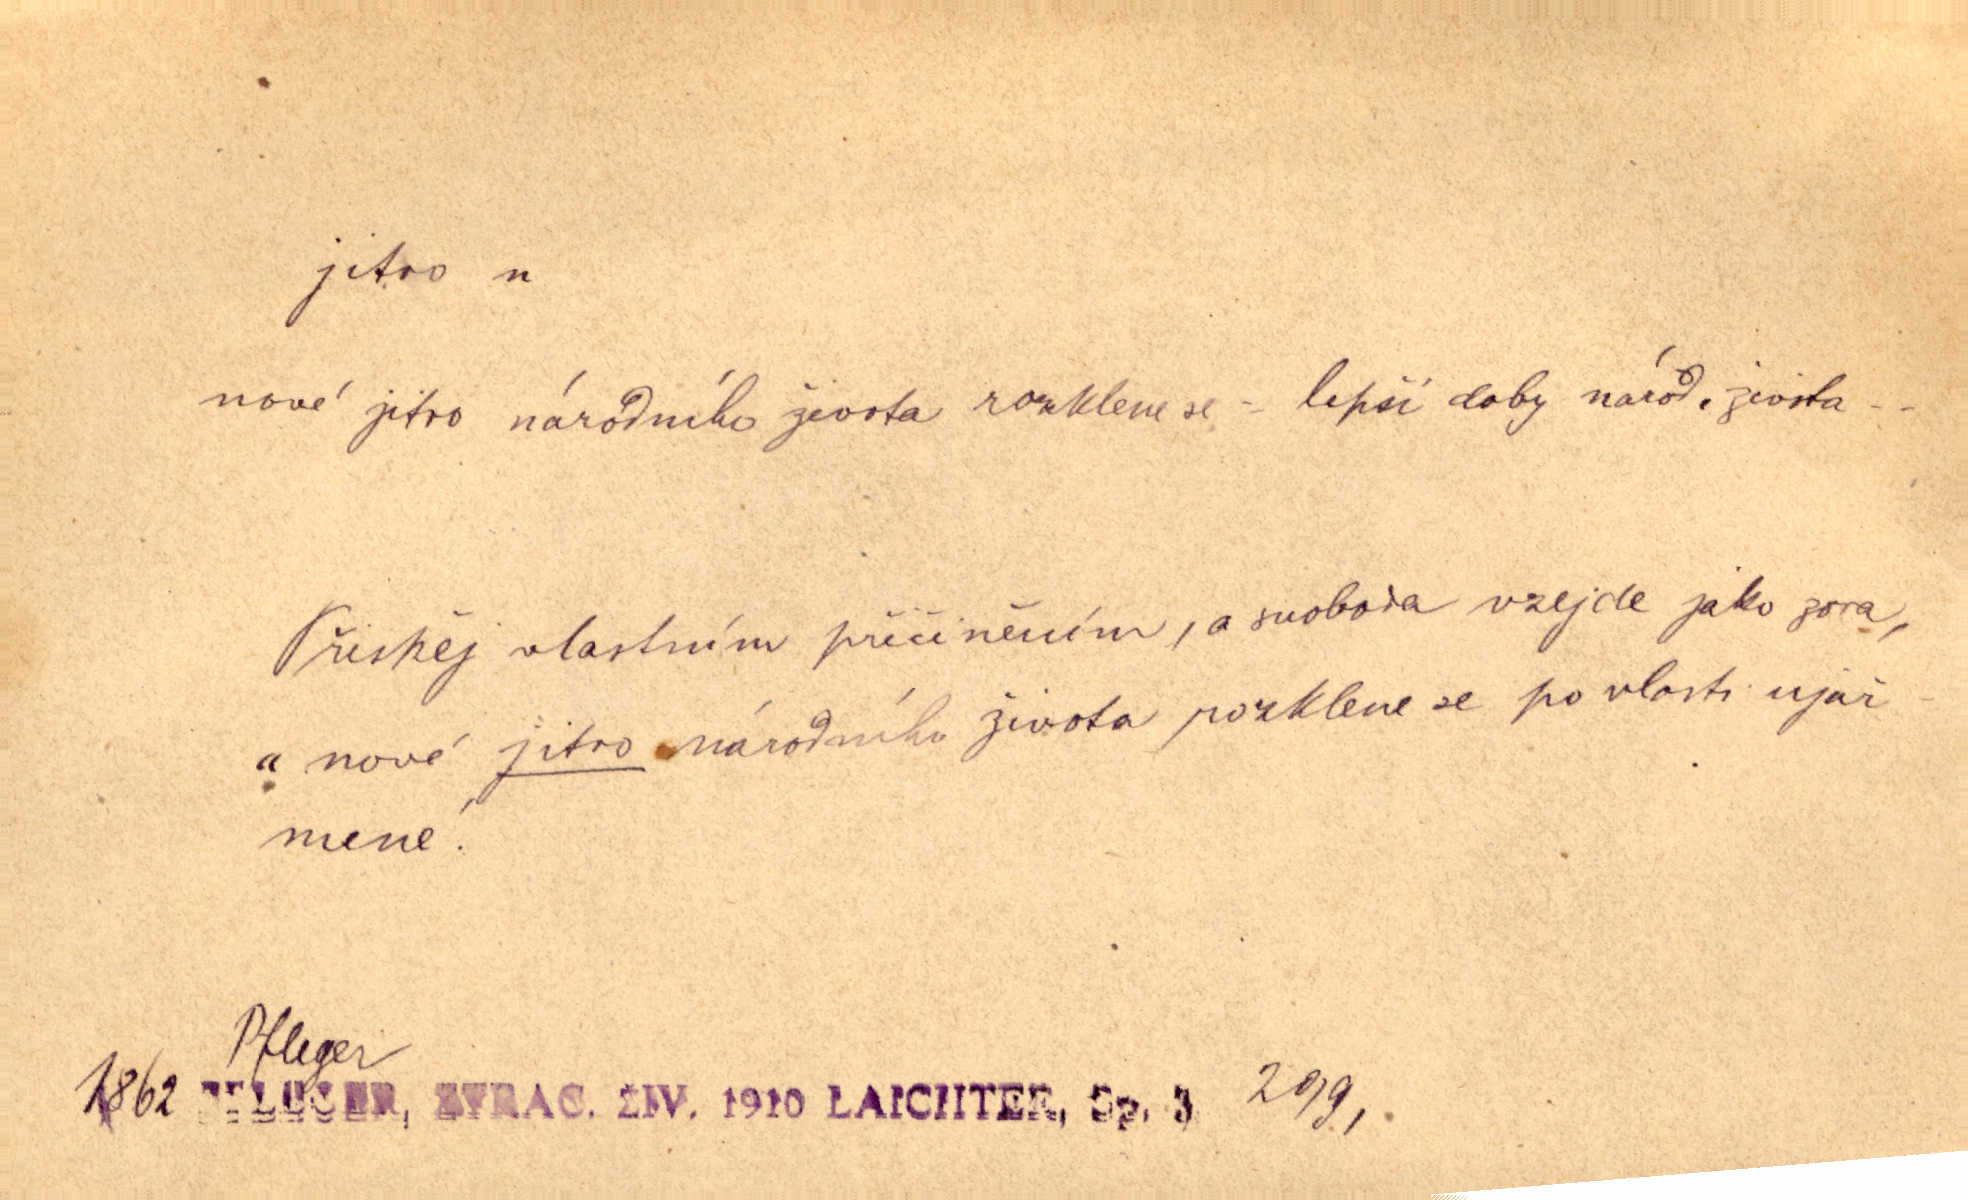 jitro n
nové jitro národního života rozklene se - lepší doby národ. života - -
Přispěj vlastním přičiněním, a svoboda vzejde jako zora,
a nové jitro národního života rozklene se po vlasti ujař-
mené.
Pfleger
1862 PFLEGER, ZTRAC. ŽIV. 1910 LAICHTER, Sp. 3 299,